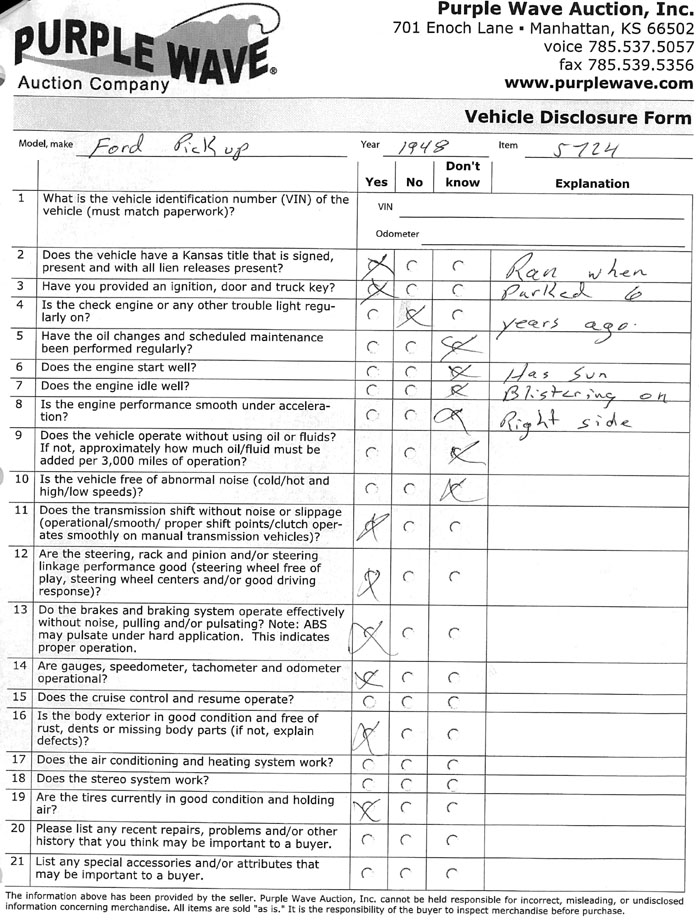 PURPLE WAVE®
Auction Company
Purple Wave Auction, Inc.
701 Enoch Lane • Manhattan, KS 66502
voice 785.537.5057
fax 785.539.5356
www.purplewave.com
Vehicle Disclosure Form
Model, make Ford Pickup Year 1948 Item 5724
Yes No Don't know Explanation
1 What is the vehicle identification number (VIN) of the
vehicle (must match paperwork)?
VIN
Odometer
2 Does the vehicle have a Kansas title that is signed,
present and with all lien releases present?
Ran when
3 Have you provided an ignition, door and truck key?
Parked 6
4 Is the check engine or any other trouble light regu-
larly on?
years ago.
5 Have the oil changes and scheduled maintenance
been performed regularly?
6 Does the engine start well?
Has sun
7 Does the engine idle well?
Blistering on
8 Is the engine performance smooth under accelera-
tion?
Right side
9 Does the vehicle operate without using oil or fluids?
If not, approximately how much oil/fluid must be
added per 3,000 miles of operation?
10 Is the vehicle free of abnormal noise (cold/hot and
high/low speeds)?
11 Does the transmission shift without noise or slippage
(operational/smooth/ proper shift points/clutch oper-
ates smoothly on manual transmission vehicles)?
12 Are the steering, rack and pinion and/or steering
linkage performance good (steering wheel free of
play, steering wheel centers and/or good driving
response)?
13 Do the brakes and braking system operate effectively
without noise, pulling and/or pulsating? Note: ABS
may pulsate under hard application. This indicates
proper operation.
14 Are gauges, speedometer, tachometer and odometer
operational?
15 Does the cruise control and resume operate?
16 Is the body exterior in good condition and free of
rust, dents or missing body parts (if not, explain
defects)?
17 Does the air conditioning and heating system work?
18 Does the stereo system work?
19 Are the tires currently in good condition and holding
air?
20 Please list any recent repairs, problems and/or other
history that you think may be important to a buyer.
21 List any special accessories and/or attributes that
may be important to a buyer.
The information above has been provided by the seller. Purple Wave Auction, Inc. cannot be held responsible for incorrect, misleading, or undisclosed
information concerning merchandise. All items are sold "as is." It is the responsibility of the buyer to inspect merchandise before purchase.